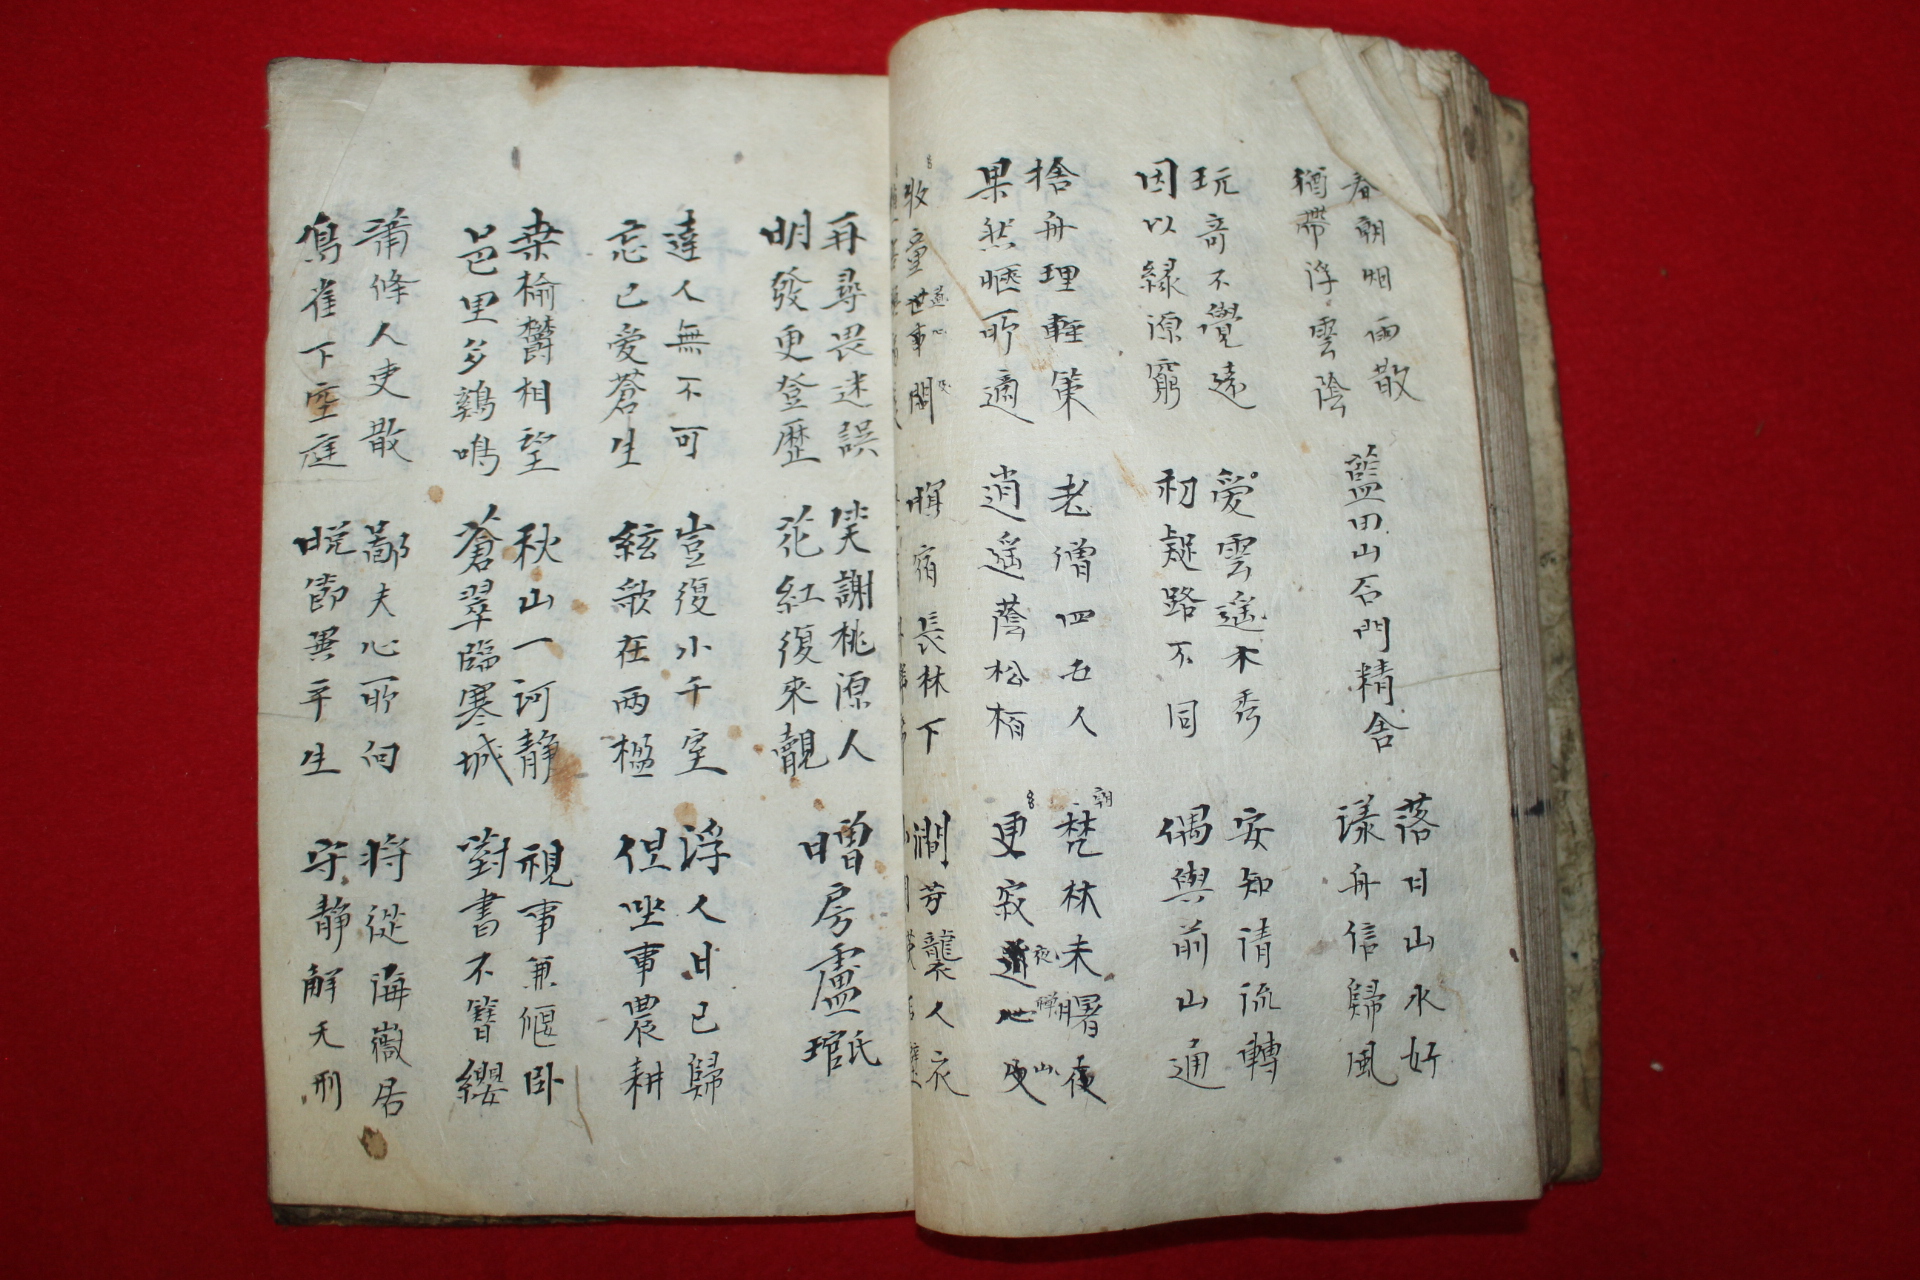 春朝烟雨散
猶帶浮雲陰
藍田山石門精舍
落日山水好
漾舟信歸風
玩奇不覺遠
因以緣源窮
愛雲遥木秀
初疑路不同
安知清流轉
偶與前山通
捨舟理輕策
果然愜所適
老僧四五人
逍遥蔭松栢
朝梵林未曙夜
夜禪山
更寂
牧童世事問
道心及
暝宿長林下
澗芳襲人衣
再尋畏迷誤
明發更登歷
笑謝桃源人
花紅復來覿
贈房盧氏琯
達人無不可
忘己愛蒼生
豈復小千室
絃歌在兩楹
浮人日已歸
但坐事農耕
桑榆鬱相望
邑里多鷄鳴
秋山一訶静
蒼翠臨寒城
視事兼偃卧
對書不簪纓
蕭條人吏散
鳥雀下空庭
鄙夫心所向
晩節異平生
將從海嶽居
守静解天刑